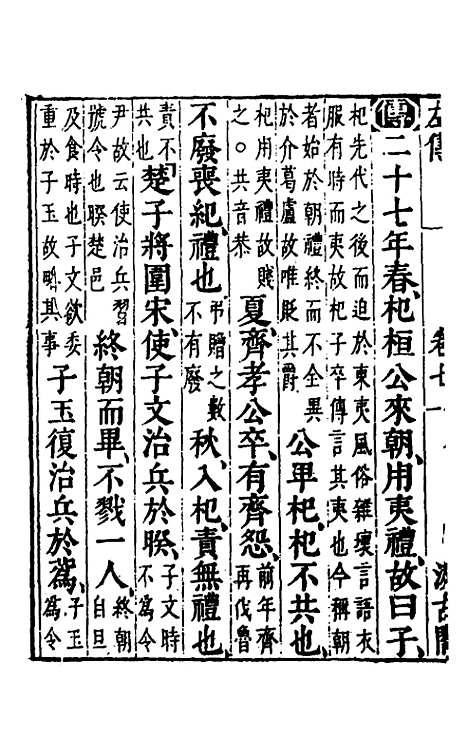 左傳
卷七
傳二十七年春、杞桓公來朝、用夷禮、故曰子、
杞先代之後而迫於東夷風俗雜壞言語衣
服有時而夷故杞子卒傳言其夷也今稱朝
者始於朝禮終而不全異
於介葛盧故唯貶其爵
公卑杞、杞不共也、
杞用夷禮故賤
之○共音恭
夏、齊孝公卒、有齊怨、
前年齊
再伐魯
不廢喪紀、禮也、
弔贈之數
不有廢
秋、入杞、責無禮也、
責不
共也
楚子將圍宋、使子文治兵於睽、
子文時
不為令
尹故云使治兵習
號令也睽楚邑
終朝而畢、不戮一人、
終朝
自旦
及食時也子文欲委
重於子玉故略其事
子玉復治兵於蒍、
子玉
為令